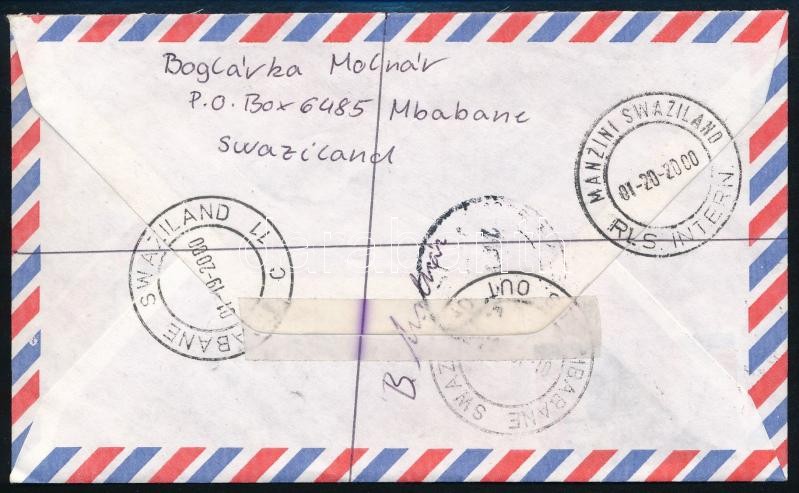 Boglárka Molnár
P.O. Box 6485 Mbabane
Swaziland
MANZINI SWAZILAND
01-20-2000
RLS. INTERN.
MBABANE SWAZILAND
01-19-2000
C 11
OUT
MBABANE
SWAZ
darabanth
B. Molnár